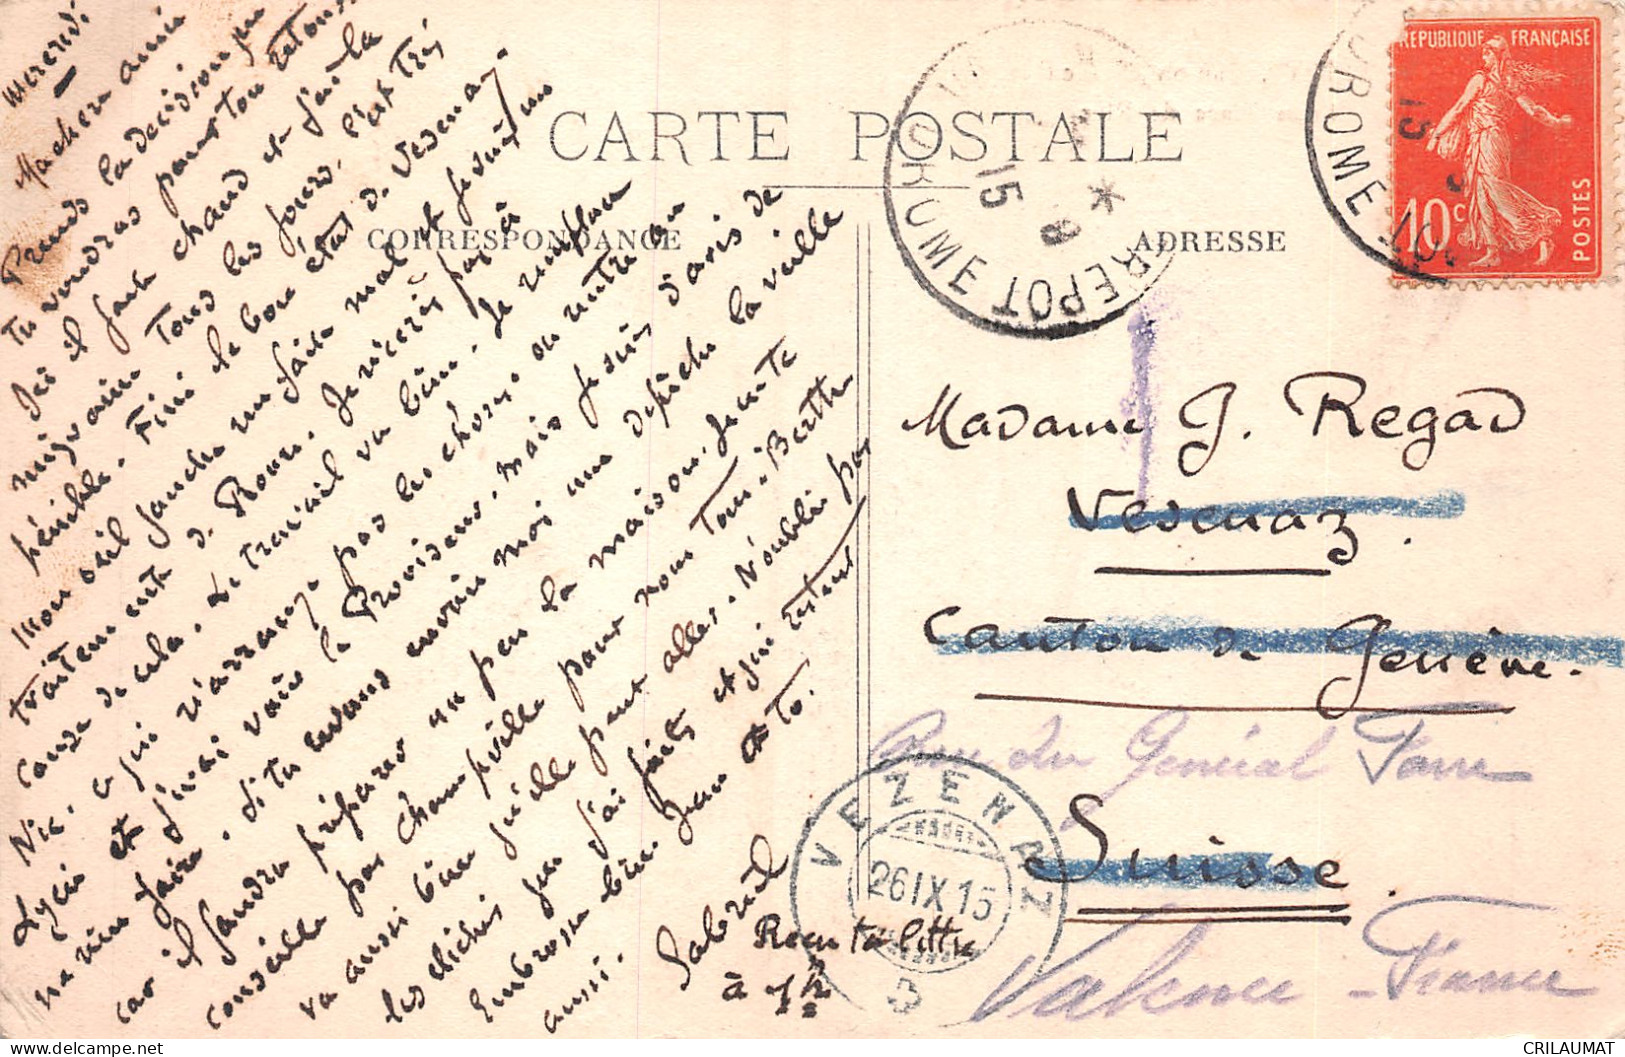 Mercredi
Ma chère amie
Prends la décision que
tu voudras pour ton retour
Ici il fait chaud et j'ai la
migraine Tous les jours. C'est très
pénible. Fini le bon état de Vesenaz.
Mon oeil gauche me fait mal et je suis un
traitement de Roure. Je n'écris pas à
cause de cela. Le travail va bien. Je remplace
Nic. ce qui n'arrange pas les choses. on rentre au
Lycée et j'irai voir le Proviseur. Mais je suis d'avis de
ne rien faire. Si tu revens envoie moi une dépêche la veille
car il faudra préparer un peu la maison. Je ne te
conseille pas Champville pour nous Tous. Berthe
va aussi bien qu'elle peut aller. N'oublie pas
les clichés que j'ai faits et qui restent
Embrasse bien Jean et to.
aussi.
Gabriel
Reçu ta lettre
à 7h ½
CARTE POSTALE
CORRESPONDANCE
ADRESSE
Madame J. Regad
Vesenaz.
Canton de Genève.
Rue du Général Farre
Suisse.
Valence - France
REPUBLIQUE FRANÇAISE
10c
POSTES
DROME
15
DROME ENTREPOT
15
8
VEZENAZ
26 IX 15
CRILAUMAT